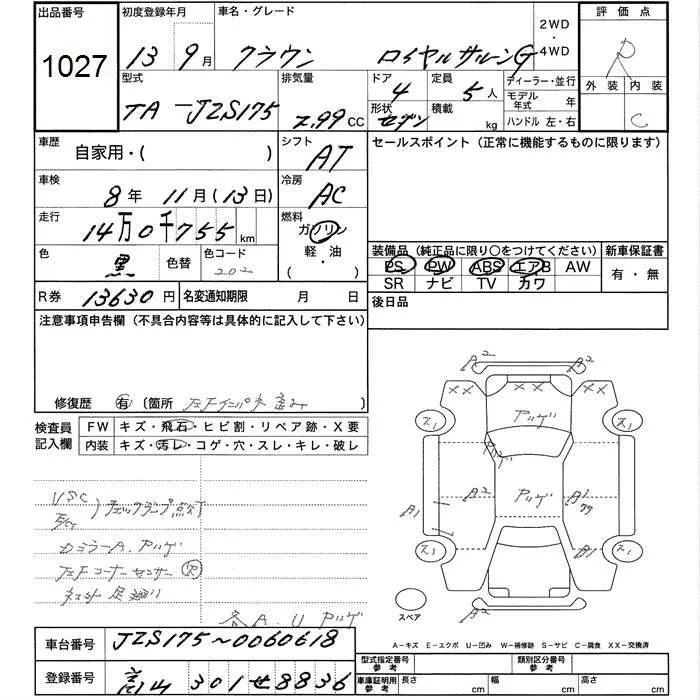 出品番号
1027
初度登録年月
13 9月
車名・グレード
クラウン ロイヤルサルーンG
2WD
・
4WD
評価点
R
外装 内装
C
型式
TA-JZS175
排気量
2.99 CC
ドア
4
形状
セダン
定員
5人
積載
kg
ディーラー・並行
モデル年式 年
ハンドル 左・右
車歴
自家用・( )
シフト
AT
車検
8年 11月(13日)
冷房
AC
走行
14万0千755 km
燃料
ガソリン
軽・油
( )
色
黒
色替
色コード
202
R券 13630円
名変通知期限 月 日
セールスポイント(正常に機能するものに限ります)
装備品(純正品に限り○をつけてください)
PS PW ABS エアB AW
SR ナビ TV カワ
新車保証書
有・無
後日品
注意事項申告欄(不具合内容等は具体的に記入して下さい)
修復歴 有 (箇所 左Fインパネ歪み
検査員記入欄
FW キズ・飛石・ヒビ割・リペア跡・X要
内装 キズ・汚レ・コゲ・穴・スレ・キレ・破レ
VSC
チェックランプ点灯
ロミラーA.アツゲ
左Fコーナーセンサー 欠
足廻り
各A.U アツゲ
A2 A2
XX XX
アツゲ
アツゲ
A2 アツゲ A1
A1 A1
A2
スペア
A-キズ E-エクボ U-凹み W-補修跡 S-サビ C-腐食 XX-交換済
車台番号 JZS175~0060618
登録番号 富山 301 せ 8836
型式指定番号 参考
類別区分番号 参考
車庫証明用 参考
長さ cm 幅 cm 高さ cm